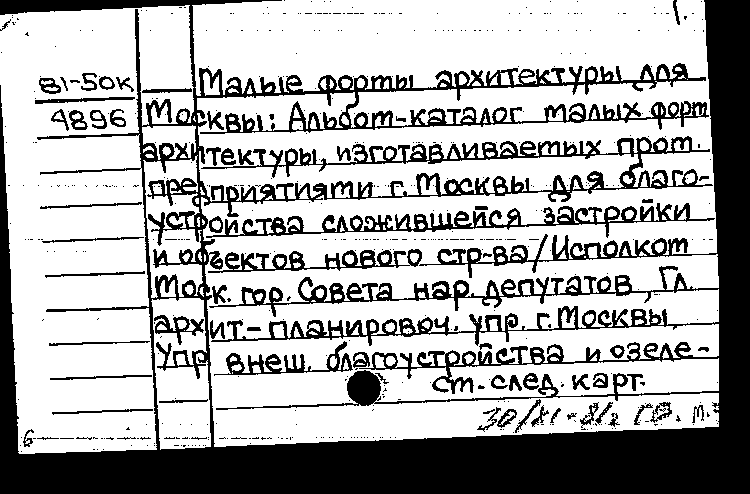 1.
81-50к Малые формы архитектуры для
4896 Москвы: Альбом-каталог малых форм
архитектуры, изготавливаемых пром.
предприятиями г. Москвы для благо-
устройства сложившейся застройки
и объектов нового стр-ва/Исполком
Моск. гор. Совета нар. депутатов, Гл.
архит.-планировоч. упр. г. Москвы,
Упр внеш. благоустройства и озеле-
см. след. карт.
6